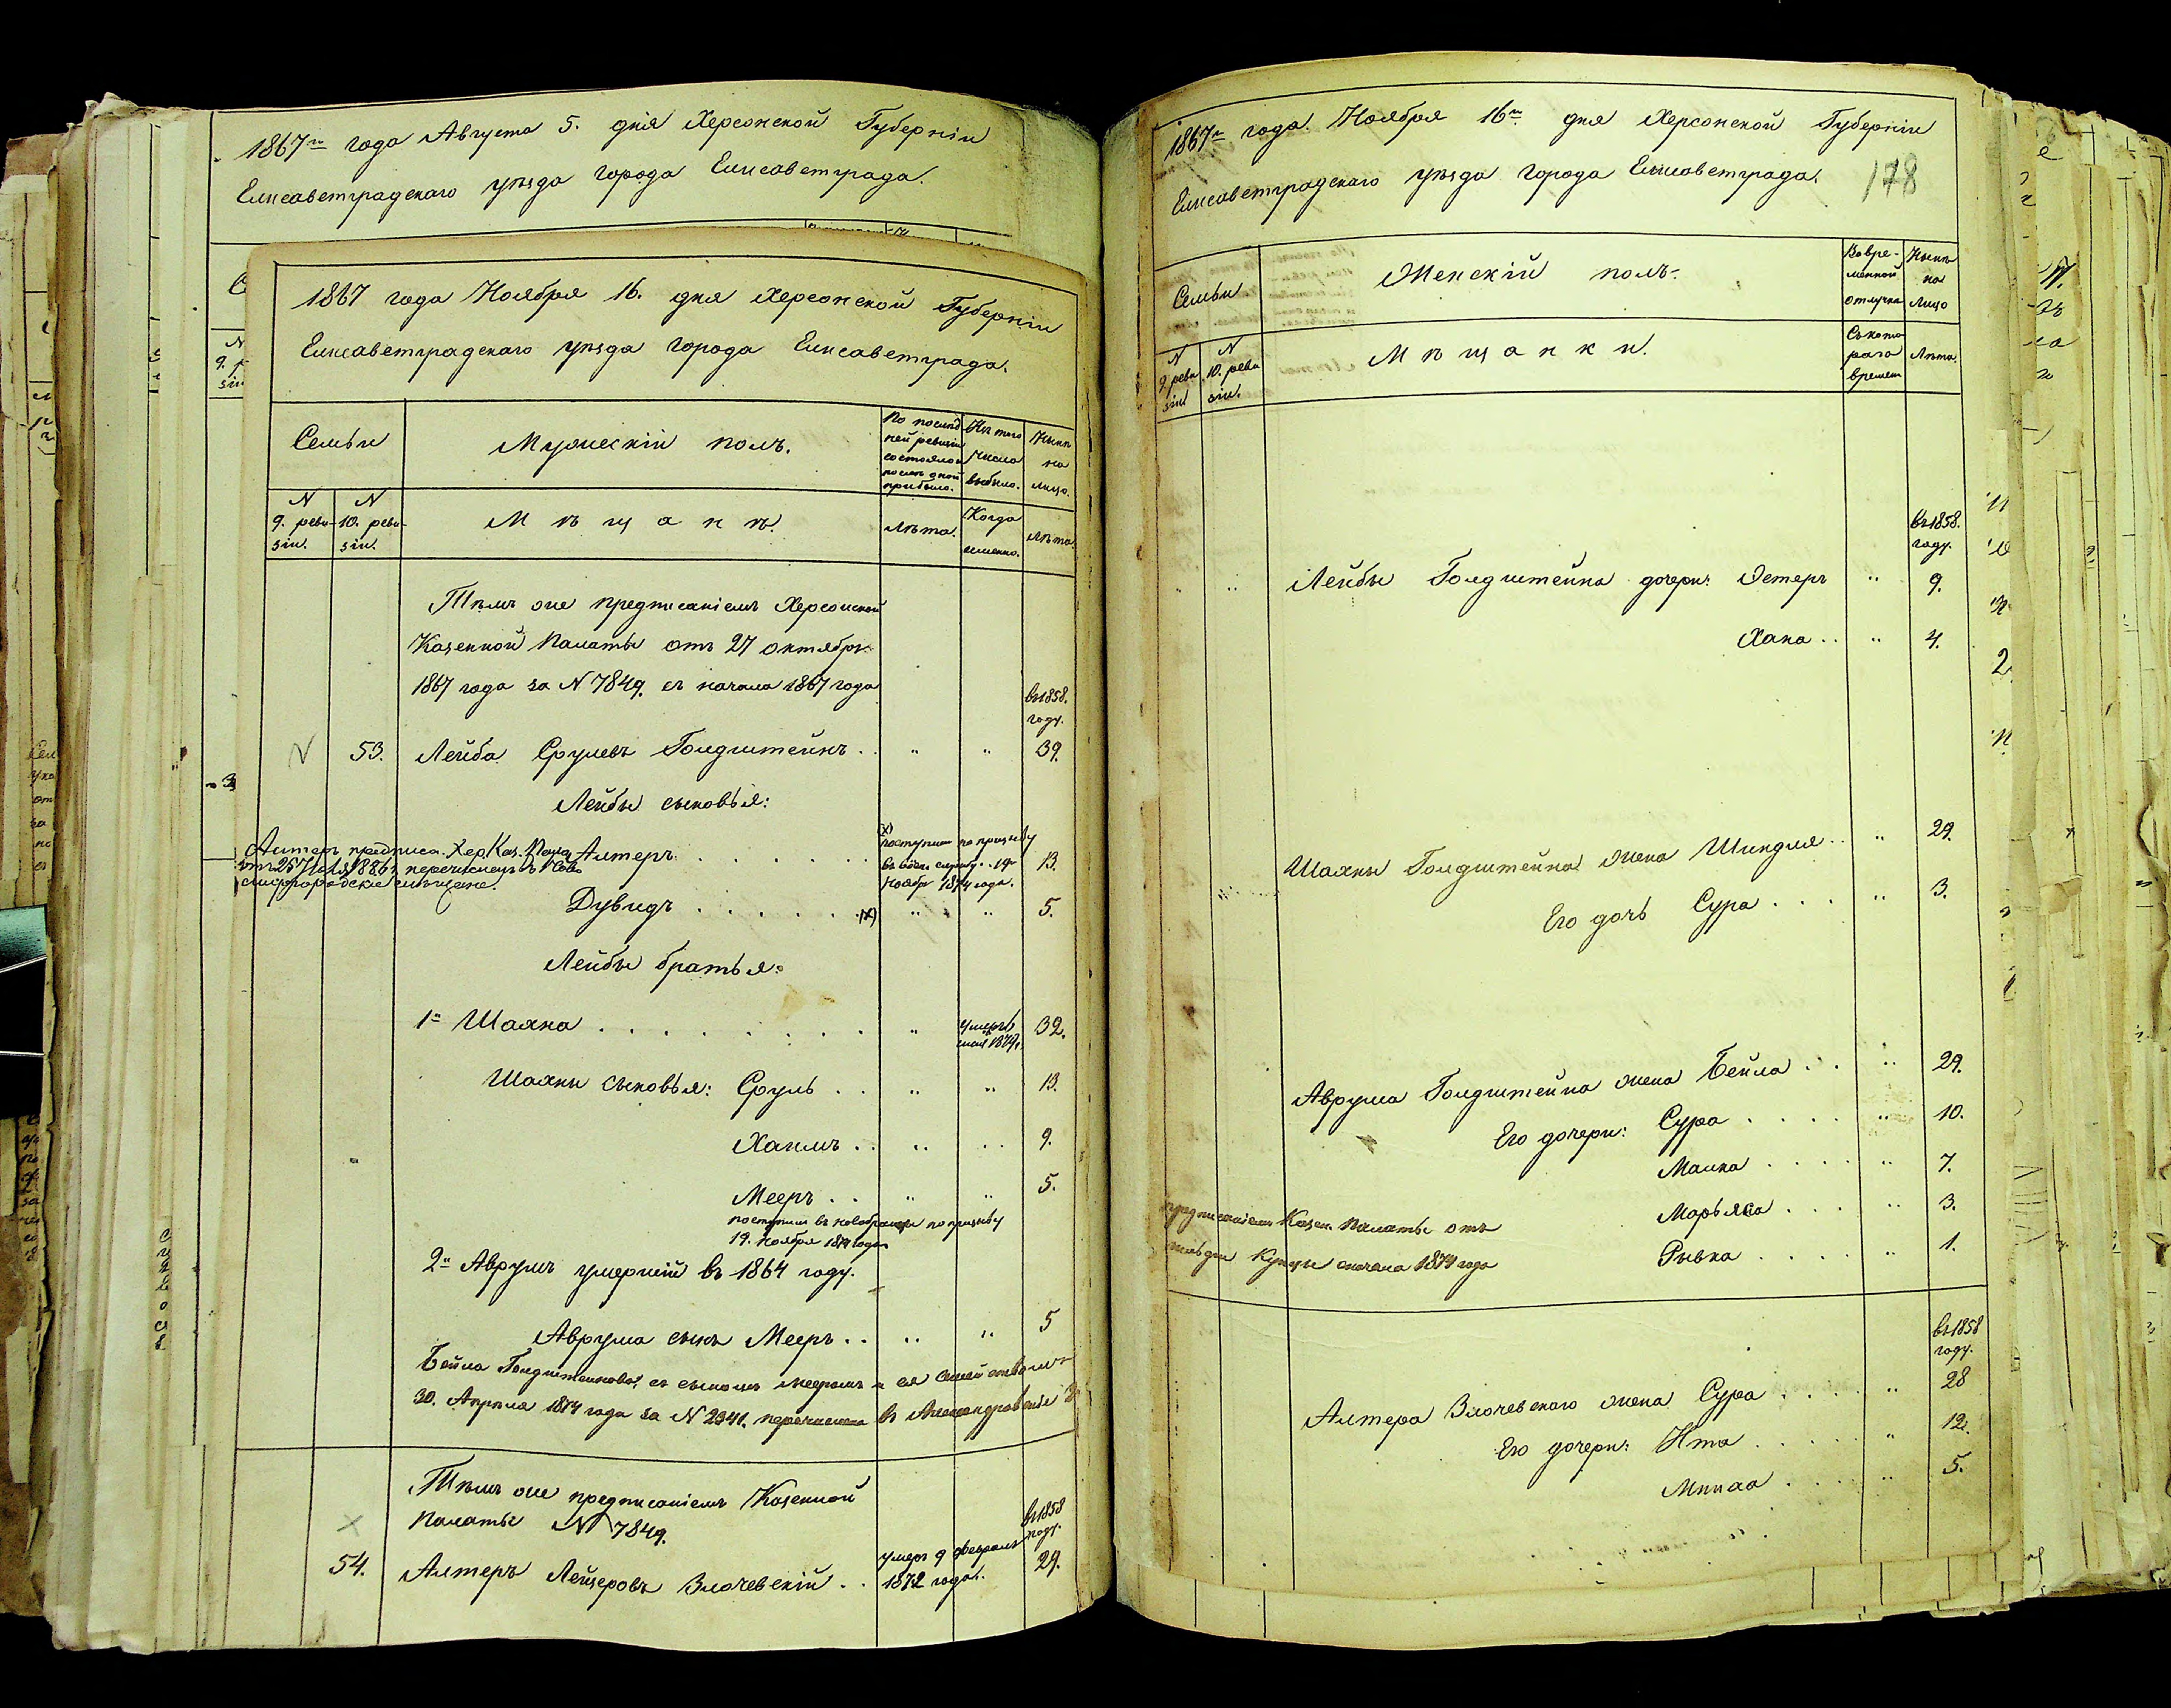 1867го года Августа 5. дня Херсонской Губерніи
Елисаветградскаго уѣзда города Елисаветграда.
1867 года Ноября 16. дня Херсонской Губерніи
Елисаветградскаго уѣзда города Елисаветграда.
Семьи
Мужескій полъ.
По послѣд
ней ревизіи
состояло и
послѣ оной
прибыло.
Изъ того
числа
выбыло.
Нынѣ
на
лицо.
N
9. реви-
зіи.
N
10. реви-
зіи.
Мѣщанѣ.
Лѣта.
Когда
именно.
Лѣта.
Тѣмъ же предписаніемъ Херсонской
Казенной Палаты отъ 27 октября
1867 года за N 7849. съ начала 1867 года
въ 1858.
году.
53. Лейба Срулевъ Голдштейнъ . . " " 39.
Лейбы сыновья:
Алтеръ предписа. Хер. Каз. Пала.
Алтеръ . . . . . .
(х)
поступил по призыву
въ воен службу . 19
Ноября 1874 года.
13.
Дувидъ . . . . . . (х) " " 5.
Лейбы братья:
1й Шаяна . . . . . . . . . " умеръ
мая 1874г.
32.
Шаяны сыновья: Сруль . . " " 13.
Хаимъ . . " . . 9.
Мееръ . . " " 5.
поступил въ новобранцы по призыву
19. Ноября 1874 года
2й Аврумъ умершій въ 1864 году.
Аврума сынъ Мееръ . . " " 5
Бейла Голдштейнова, съ сыномъ Мееромъ и ея семействомъ
30. Апрѣля 1874 года за N 2341. перечислена въ Александровскіе
Тѣмъ же предписаніемъ Казенной
Палаты N 7849.
въ 1858
году.
54. Алтеръ Лейзеровъ Злочевскій . . умеръ 9 февраля
1872 года.
29.
1867го года Ноября 16го дня Херсонской Губерніи
Елисаветградскаго уѣзда города Елисаветграда.
178
Семьи
Женскій полъ.
Во вре-
менной
отлучкѣ
Нынѣ
на
лицо
N
9. реви
зіи
N
10. реви
зіи.
Мѣщанки.
Съ кото
раго
времени
Лѣта.
въ 1858.
году.
" " Лейбы Голдштейна дочери: Эстеръ " 9.
Хана . . " 4.
Шаяны Голдштейна жена Шиндля . . " 29.
Его дочь Сура . . . " 3.
Аврума Голдштейна жена Бейла . . " 29.
Его дочери: Сура . . . . " 10.
Малка . . . . " 7.
Марьяса . . . " 3.
предписаніемъ Казен. Палаты отъ
Рывка . . . . " 1.
купцы сначала 1874 года
въ 1858
году.
Алтера Злочевскаго жена Сура . . . . " 28
Его дочери: Ита . . . . . " 12.
5.